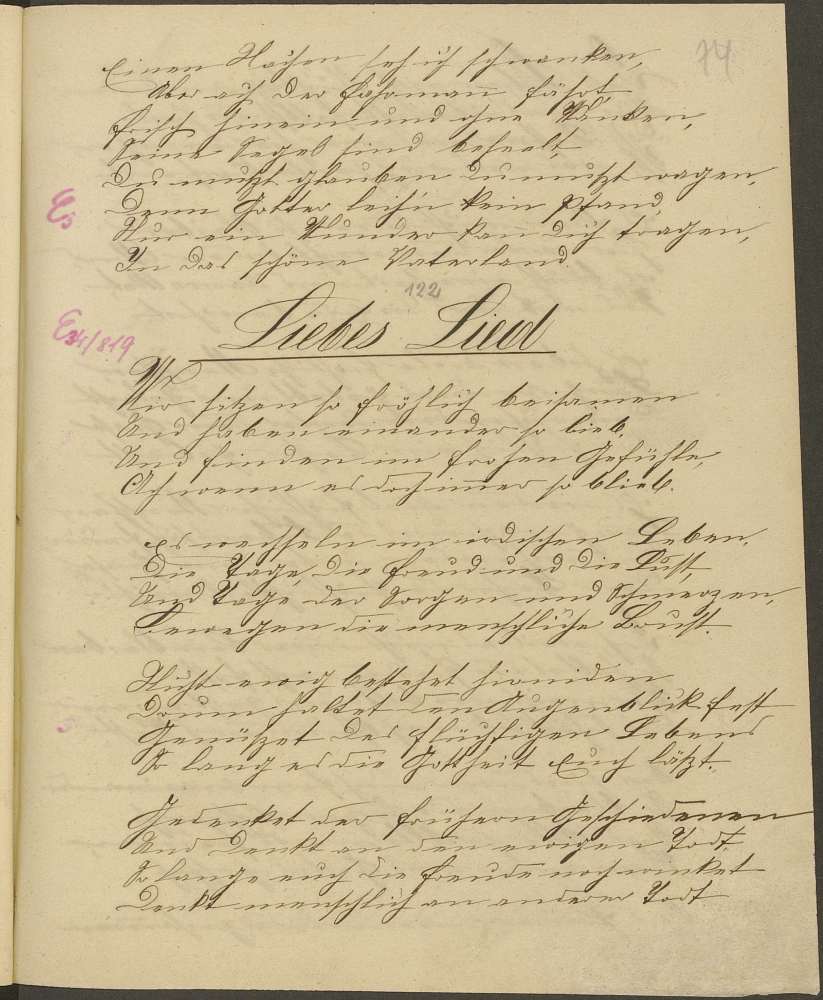 74
Einen Nachen seh ich schwanken,
Aber ach der Fährman fehlt,
Frisch hinein und ohne Wanken,
Seine Segel sind beseelt,
Du mußt glauben du mußt wagen,
Denn Götter leih'n kein Pfand,
Nur ein Wunder kan dich tragen,
In das schöne Vaterland.
122
Liebes Lied
Wir sitzen so fröhlich beisamen
Und haben einander so lieb,
Und finden im frohen Gefühle,
Ach wenn es doch immer so blieb.
Es wechseln im irdischen Leben,
Die Tage, die Freud und die Lust,
Und Tage der Sorgen und Schmerzen,
Bewegen die menschliche Brust.
Nicht ewig bestehet hieniden
Drum haltet den Augenblick fest
Genüßet des flüchtigen Lebens
So lang es die Gottheit Euch läßt.
Gedenket der frühern Geschiedenen
Und denkt an den ewigen Todt,
So lange euch die Freude noch winket
Denkt menschlich an anderer Todt